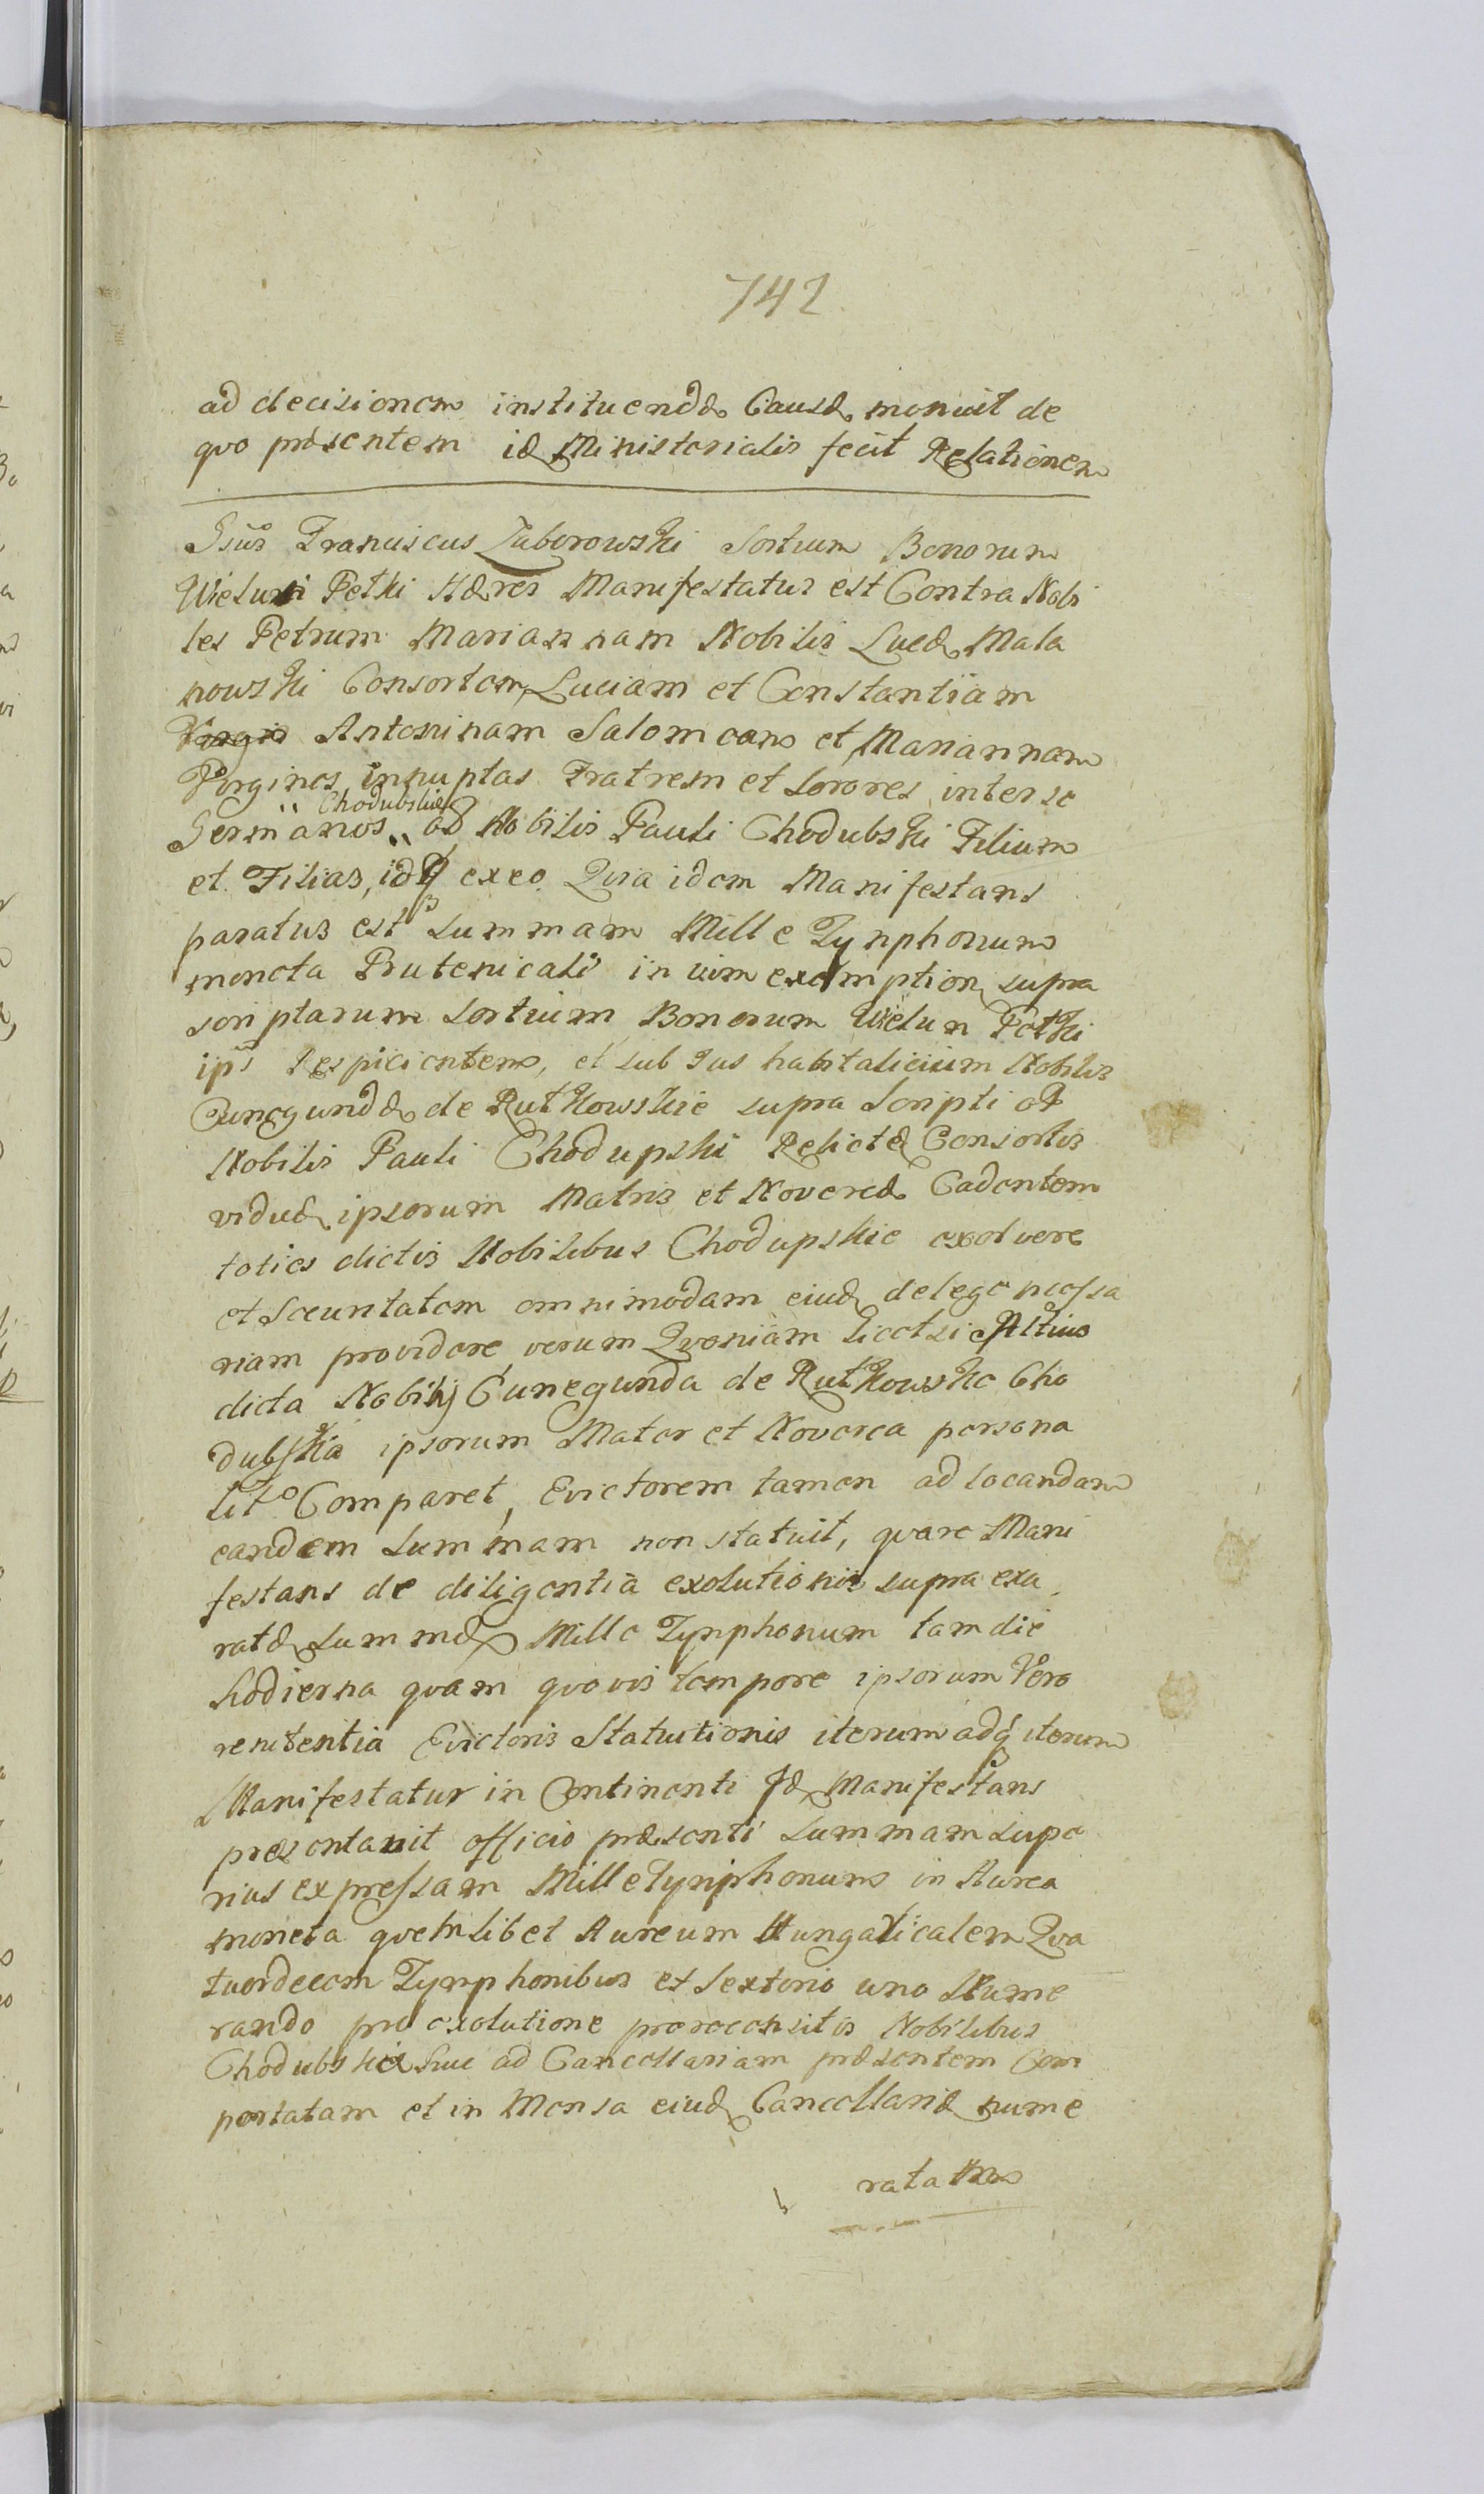 742
ad decisionem instituendæ Causæ monuit de
quo præsentem idē Ministerialis fecit Relationem
Gsūs Franciscus Zaborowski Sortium Bonorum
Wieluń Petki Hæres Manifestatus est Contra Nobi
les Petrum Mariannam Nobilis Lucæ Mala
nowski Consortem, Luciam et Constantiam
Antoninam Salomeam et Mariannam
Virgines inuptas Fratrem et Sorores inter se
Germanos Chodubskie od Nobilis Pauli Chodubski Filium
et Filias, idq, exeo Quia idem Manifestans
paratus est Summam Mille Tynphonum
moneta Prutenicali in vim exemption supra
scriptarum Sortium Bonorum Wielun Petki
ips respicientem, et sub Jus habitalicium Nobilis
Cunegundæ de Rutkowskie supra Scripti od
Nobilis Pauli Chodupski Relictæ Consortis
viduæ ipsorum Matris et Novercæ Cadentem
toties dictis Nobilibus Chodupskie exolvere
et Securitatem omnimodam eiud de lege necessa
riam providere, verum Quoniam licet sic Altius
dicta Nobilij Cunegunda de Rutkowskie Cho
dubska ipsorum Mater et Noverca persona
lito Comparet, Evictorem tamen ad locandam
eandem Summam non statuit, quare Mani
festans de diligentia exolutionis supra exa
ratæ Summæ Mille Tynphonum tam die
hodierna quam quovis tempore ipsorum Vero
renitentia Evictoris Statuitionis iterum adq iterum
Manifestatur in Continenti Id Manifestans
præsentavit officio præsenti Summam Supe
rius expressam Mille Tynphonum in Aurea
moneta quemlibet Aureum Hungaricalem Qva
tuordecem Tynphonibus et Sextorio uno Nume
rando pro exolutione prærecensitis Nobilibus
Chodubskie huc ad Cancellariam præsentem Com
portatam et in Mensa eiud Cancellariæ nume
ratam